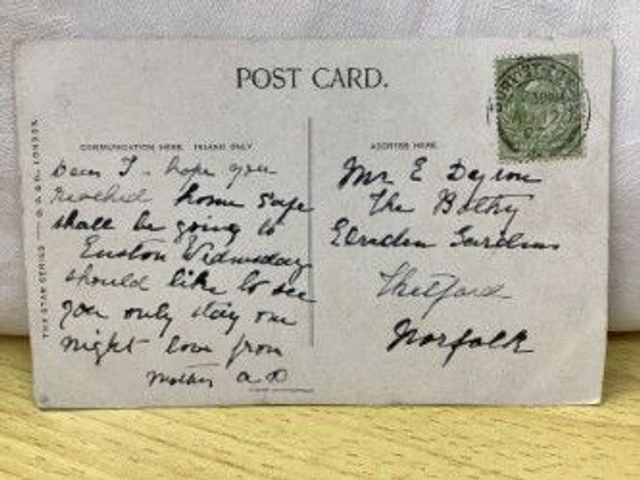 POST CARD.
COMMUNICATION HERE. INLAND ONLY
ADDRESS HERE.
THE STAR SERIES — G.D.&D., LONDON
Dear I hope you
reached home safe
shall be going to
Euston Wednesday
should like to see
you only stay one
night love from
Mother a D
Mr E
The Bothy
Gardens
Thetford
Norfolk